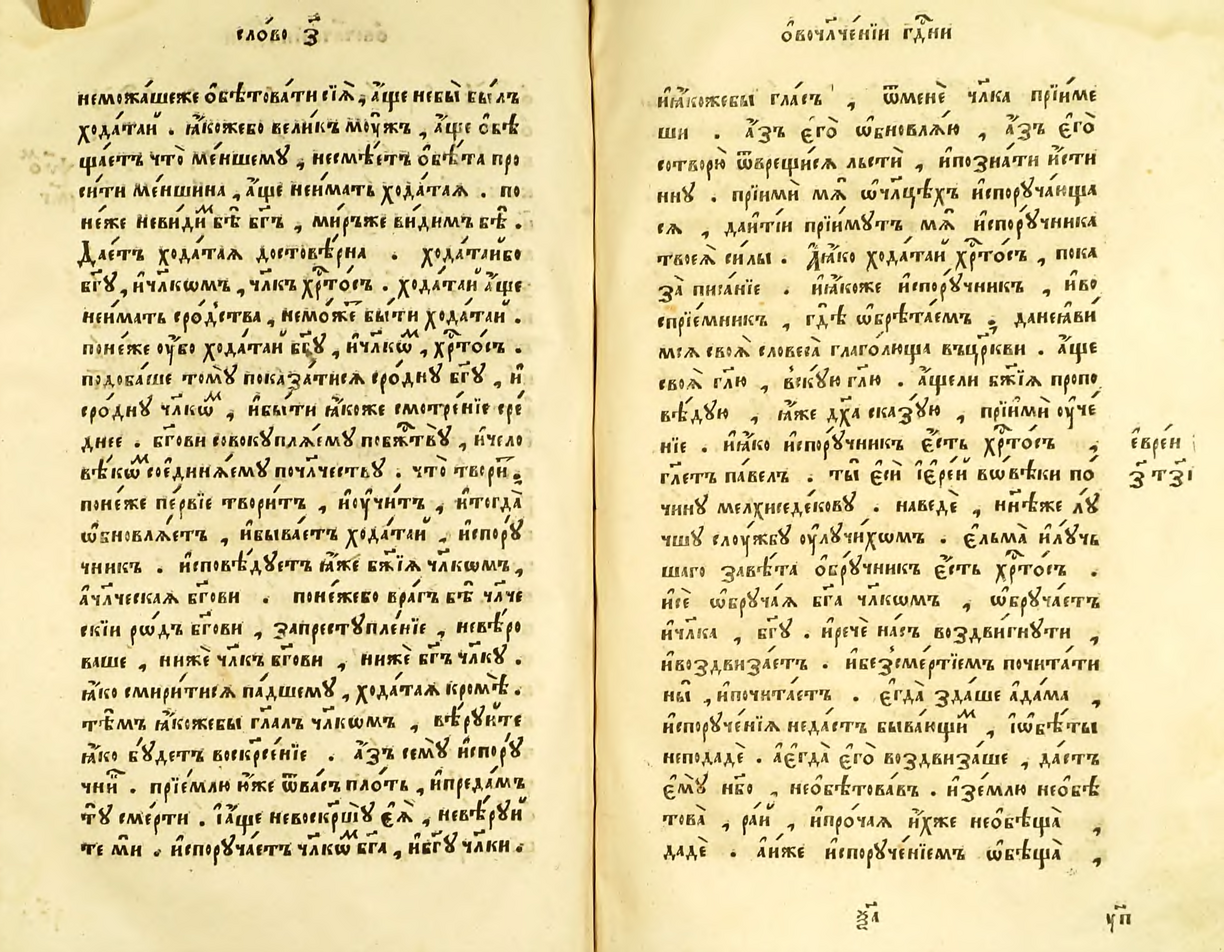 сло́во з҃
неможа́шеже ѻ҆бѣтова́ти сїѧ̀, а҆́ще небы̀ бы́лъ
хода́тай . ꙗ҆́кожебо вели́къ моу́жъ , а҆́ще ѻ҆бѣ
ща́етъ что̀ ме́ншемꙋ , несмѣ́етъ ѻ҆бѣ́та про
си́ти ме́ншина , а҆́ще неи́мать хода́таѧ . по
не́же неви́диⷨ бѣ̀ бг҃ъ , ми́ръже ви́димъ бѣ̀ .
Дае́тъ хода́таѧ достовѣ́рна . хода́тайбо
бг҃ꙋ , и҆чл҃кѡмъ , чл҃къ хрⷭ҇то́съ . хода́тай а҆́ще
неи́мать сро́дства , немо́же бы́ти хода́тай .
поне́же оу҆́бо хода́тай бг҃ꙋ , и҆чл҃кѡⷨ , хрⷭ҇то́съ .
подоба́ше томꙋ̀ показа́тисѧ сро́днꙋ бг҃ꙋ , и҆
сро́днꙋ чл҃кѡⷨ , и҆бы́ти ꙗ҆́коже смотре́нїе сре́
днее . бг҃ови совокꙋплѧ́емꙋ побжⷭ҇твꙋ̀ , и҆чело
вѣ́кѡⷨ соединѧ́емꙋ почл҃честву . что̀ твори́ⷮ ;
поне́же пе́рвїе твори́тъ , и҆оу҆чи́тъ , и҆тогда̀
ѡ҆бновлѧ́етъ , и҆быва́етъ хода́тай , и҆спорꙋ́
чникъ . и҆сповѣ́дꙋетъ ꙗ҆́же бж҃їѧ чл҃кѡмъ ,
а҆чл҃ческаѧ бг҃ови . поне́жебо вра́гъ бѣ̀ чл҃че
скїи рѡ́дъ бг҃ови , запрестꙋпле́нїе , невѣ́ро
ваше , нижѐ чл҃къ бг҃ови , нижѐ бг҃ъ чл҃кꙋ .
ꙗ҆́ко смири́тисѧ па́дшемꙋ , хода́таѧ кромѣ̀ .
тѣ́мъ ꙗ҆́кожебы гл҃алъ чл҃кѡмъ , вѣ́рꙋйте
ꙗ҆́ко бꙋ́детъ воскр҃се́нїе . а҆́зъ семꙋ̀ и҆спорꙋ́
чниⷦ҇ . прїе́млю ю҆́же ѿва́съ пло́ть , и҆преда́мъ
тꙋ̀ сме́рти . и҆а҆́ще невоскр҃шꙋ̀ є҆ѧ̀ , невѣ́рꙋй
те мѝ . и҆спорꙋча́етъ чл҃кѡⷨ бг҃а , и҆бг҃ꙋ чл҃ки .
ѻ҆вочл҃че́нїи гдⷭ҇ни
и҆ꙗ҆́кожебы гла́съ , ѿменѐ чл҃ка прїи́ме
ши . а҆́зъ є҆го̀ ѡ҆бновлѧ́ю , а҆́зъ є҆го̀
сотворю̀ ѿврещи́сѧ льстѝ , и҆позна́ти и҆́сти
ннꙋ . прїимѝ мѧ̀ ѡ҆чл҃цѣхъ и҆спорꙋча́юща
сѧ , даи҆ті́и прїи́мꙋтъ мѧ̀ и҆спорꙋ́чника
твоеѧ̀ си́лы . Ꙗ҆́ко хода́тай хрⷭ҇то́съ , пока
за̀ писа́нїе . и҆ꙗ҆́коже и҆спорꙋ́чникъ , и҆во
спрїе́мникъ , гдѣ̀ ѡ҆брѣта́емъ ; данеꙗ҆ви́
мсѧ своѧ̀ словеса̀ глаго́люща въцр҃кви . а҆́ще
своѧ̀ гл҃ю , вскꙋ́ю гл҃ю . а҆́щели бж҃їѧ пропо
вѣ́дꙋю , ꙗ҆́же дх҃а сказꙋ́ю , прїимѝ оу҆че́
нїе . и҆ꙗ҆́ко и҆спорꙋ́чникъ є҆́сть хрⷭ҇то́съ ,
гл҃етъ па́велъ . ты̀ є҆сѝ і҆ере́й вѡвѣ́ки по
чи́нꙋ мелхиседе́ковꙋ . наведѐ , нн҃ѣже лꙋ́
чшꙋ слоу́жбꙋ оу҆лꙋчи́хѡмъ . є҆льма̀ и҆лꙋ́чь
шаго завѣ́та ѻ҆брꙋ́чникъ є҆́сть хрⷭ҇то́съ .
и҆сѐ ѡ҆брꙋча́ѧ бг҃а чл҃кѡмъ , ѡ҆брꙋча́етъ
и҆чл҃ка , бг҃ꙋ . и҆речѐ на́съ воздви́гнꙋти ,
и҆воздвиза́етъ . и҆безсме́ртїемъ почита́ти
ны̀ , и҆почита́етъ . є҆гда̀ зда́ше а҆да́ма ,
и҆спорꙋче́нїѧ неда́стъ быва́ющиⷨ , і҆ѡ҆бѣ́ты
неподадѐ . а҆є҆гда̀ є҆го̀ воздвиза́ше , да́стъ
є҆мꙋ̀ нб҃о , неѻ҆бѣтова́въ . и҆зе́млю неѻ҆бѣ
това̀ , ра́й , и҆про́чаѧ и҆́хже неѻ҆бѣща̀ ,
дадѐ . а҆и҆́же и҆спорꙋче́нїемъ ѡ҆бѣща̀ ,
є҆вре́и
з҃ тз҃і
ѯ҃а
у҃п